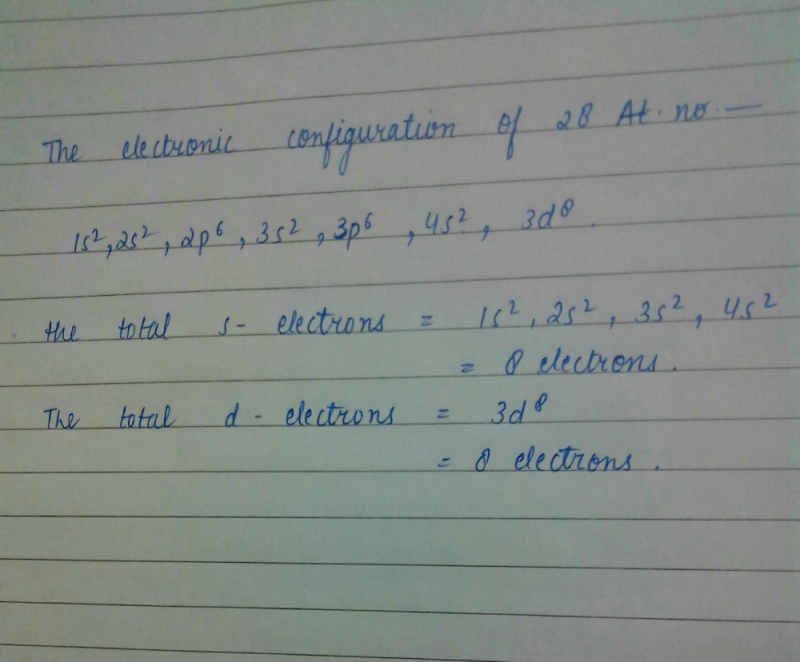 The electronic configuration of 28 At. no. —
1s², 2s², 2p⁶, 3s², 3p⁶, 4s², 3d⁸.
the total s- electrons = 1s², 2s², 3s², 4s²
= 8 electrons.
The total d- electrons = 3d⁸
= 8 electrons.